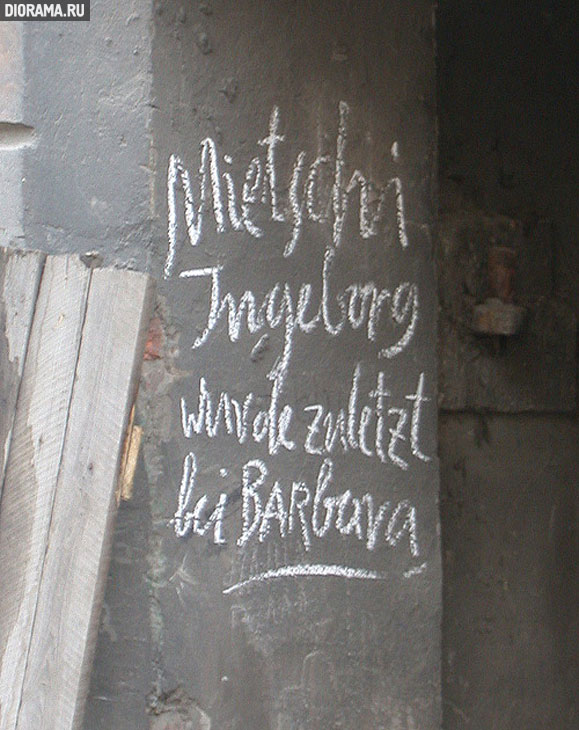 DIORAMA.RU
Mietschi
Ingeborg
wurde zuletzt
bei BARbara